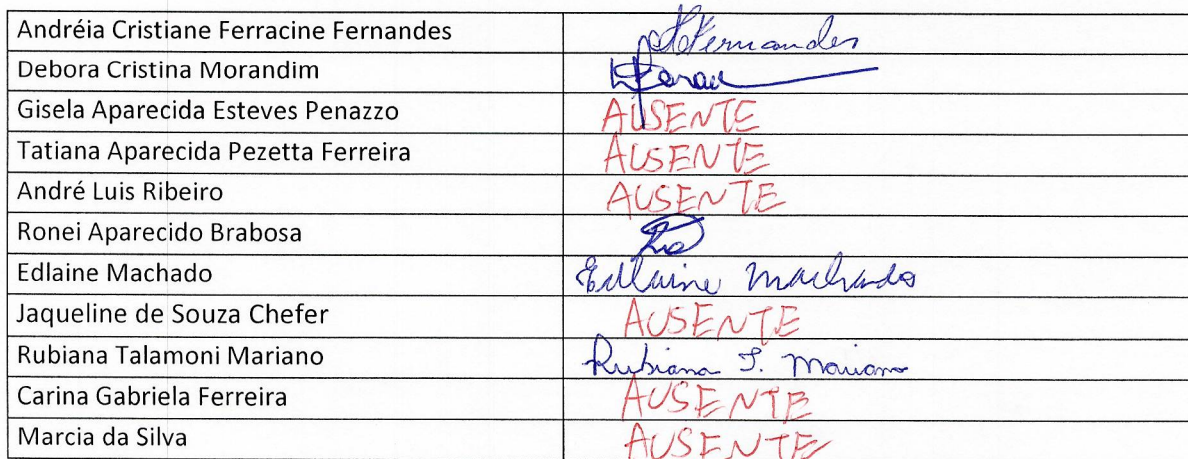 Andréia Cristiane Ferracine Fernandes Fernandes
Debora Cristina Morandim
Gisela Aparecida Esteves Penazzo AUSENTE
Tatiana Aparecida Pezetta Ferreira AUSENTE
André Luis Ribeiro AUSENTE
Ronei Aparecido Brabosa
Edlaine Machado Edlaine Machado
Jaqueline de Souza Chefer AUSENTE
Rubiana Talamoni Mariano Rubiana T. Mariano
Carina Gabriela Ferreira AUSENTE
Marcia da Silva AUSENTE